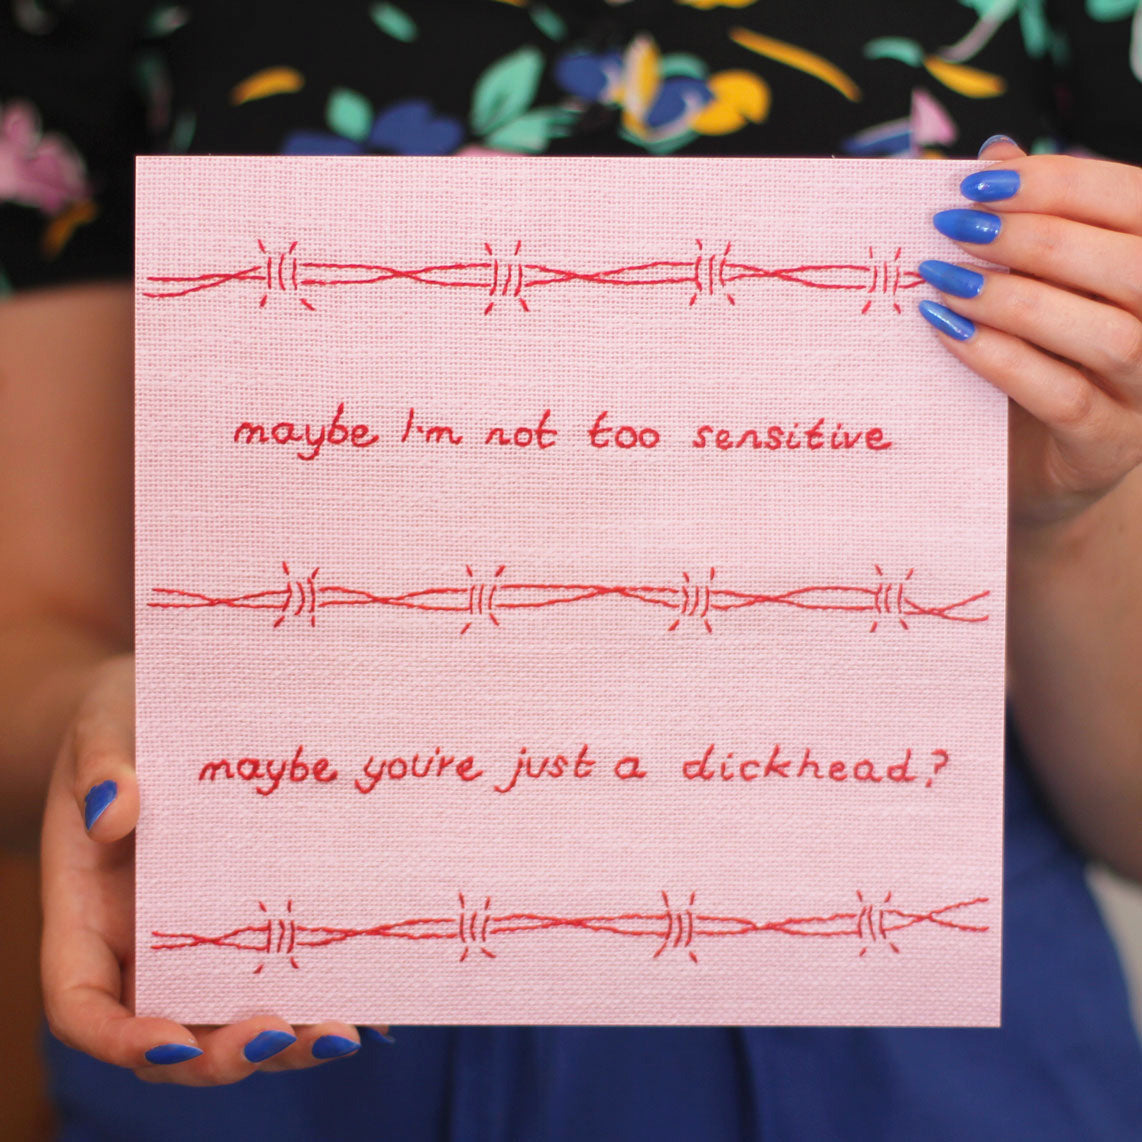 maybe I'm not too sensitive
maybe you're just a dickhead?